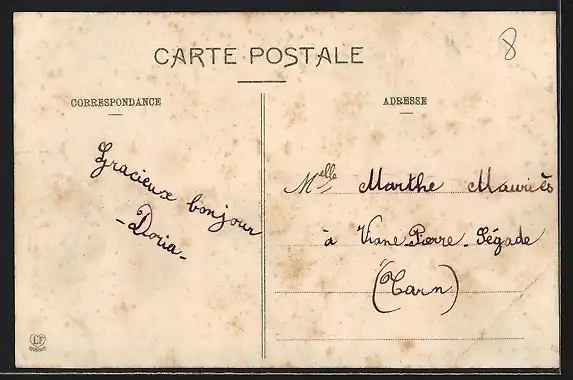 8
CARTE POSTALE
CORRESPONDANCE
ADRESSE
Gracieux bonjour
- Doria -
Melle Marthe Mauriès
à Viane-Pierre-Ségade
(Tarn)
LF